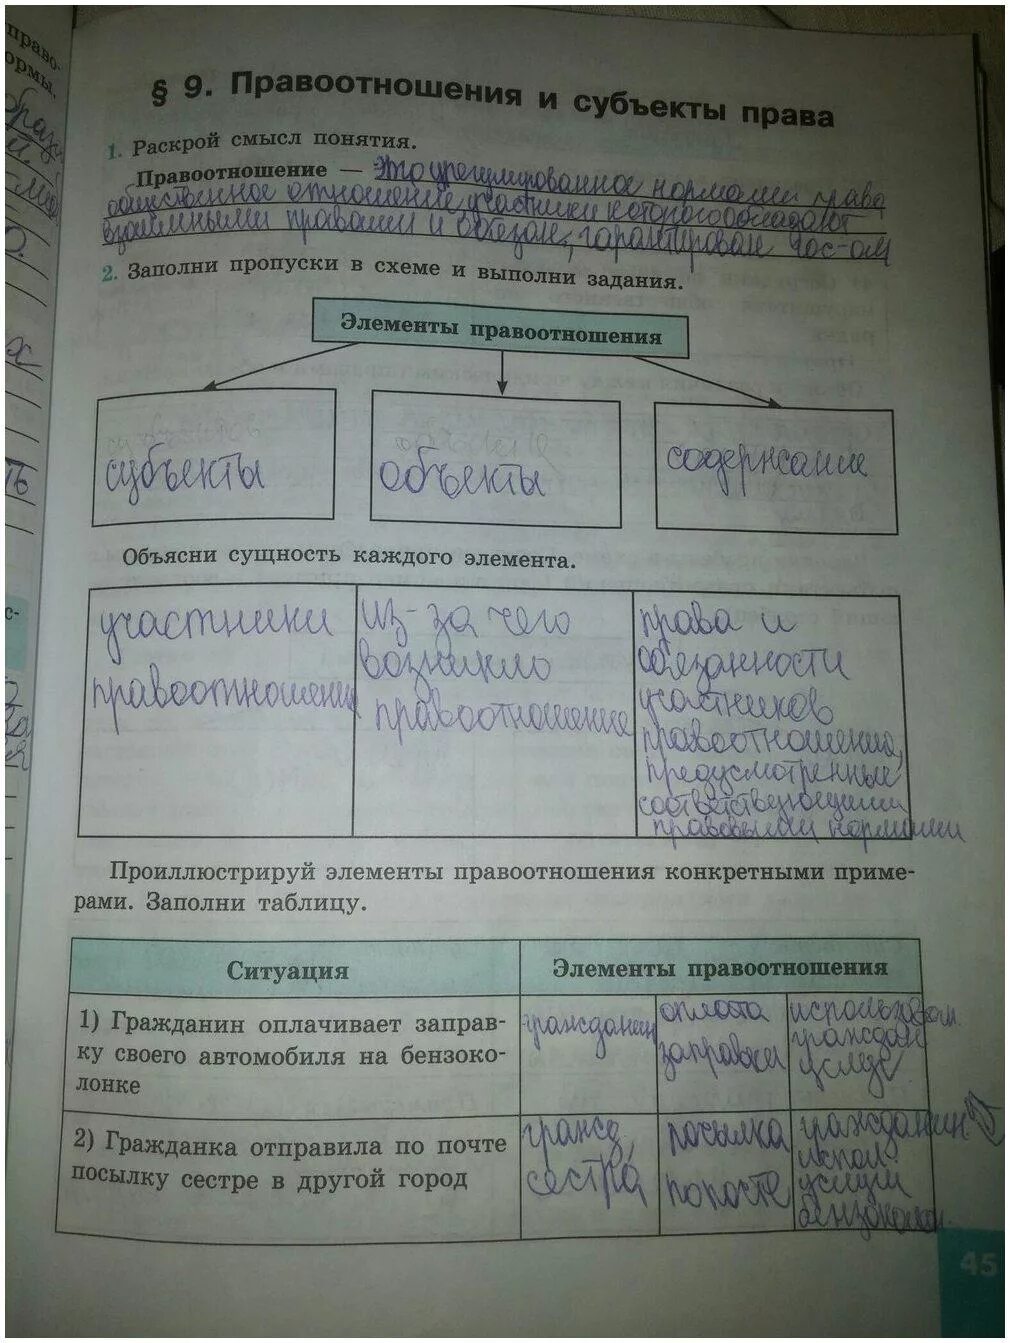 право-
ормы.
§ 9. Правоотношения и субъекты права
1. Раскрой смысл понятия.
Правоотношение — Это урегулированное нормами права
общественное отношение, участники которого обладают
взаимными правами и обезан, гарантирован гос-ом
2. Заполни пропуски в схеме и выполни задания.
Элементы правоотношения
субъекты
объекты
содержание
Объясни сущность каждого элемента.
участники
правоотношения
из-за чего
возникло
правоотношение
права и
обезанности
участников
правоотношения,
предусмотренные
соответствующими
правовыми нормами
Проиллюстрируй элементы правоотношения конкретными приме-
рами. Заполни таблицу.
Ситуация
Элементы правоотношения
1) Гражданин оплачивает заправ-
ку своего автомобиля на бензоко-
лонке
гражданин
оплата
заправки
граждан
2) Гражданка отправила по почте
посылку сестре в другой город
гражд,
сестра
посылка
попочте
гражданин
испол
услуги
45